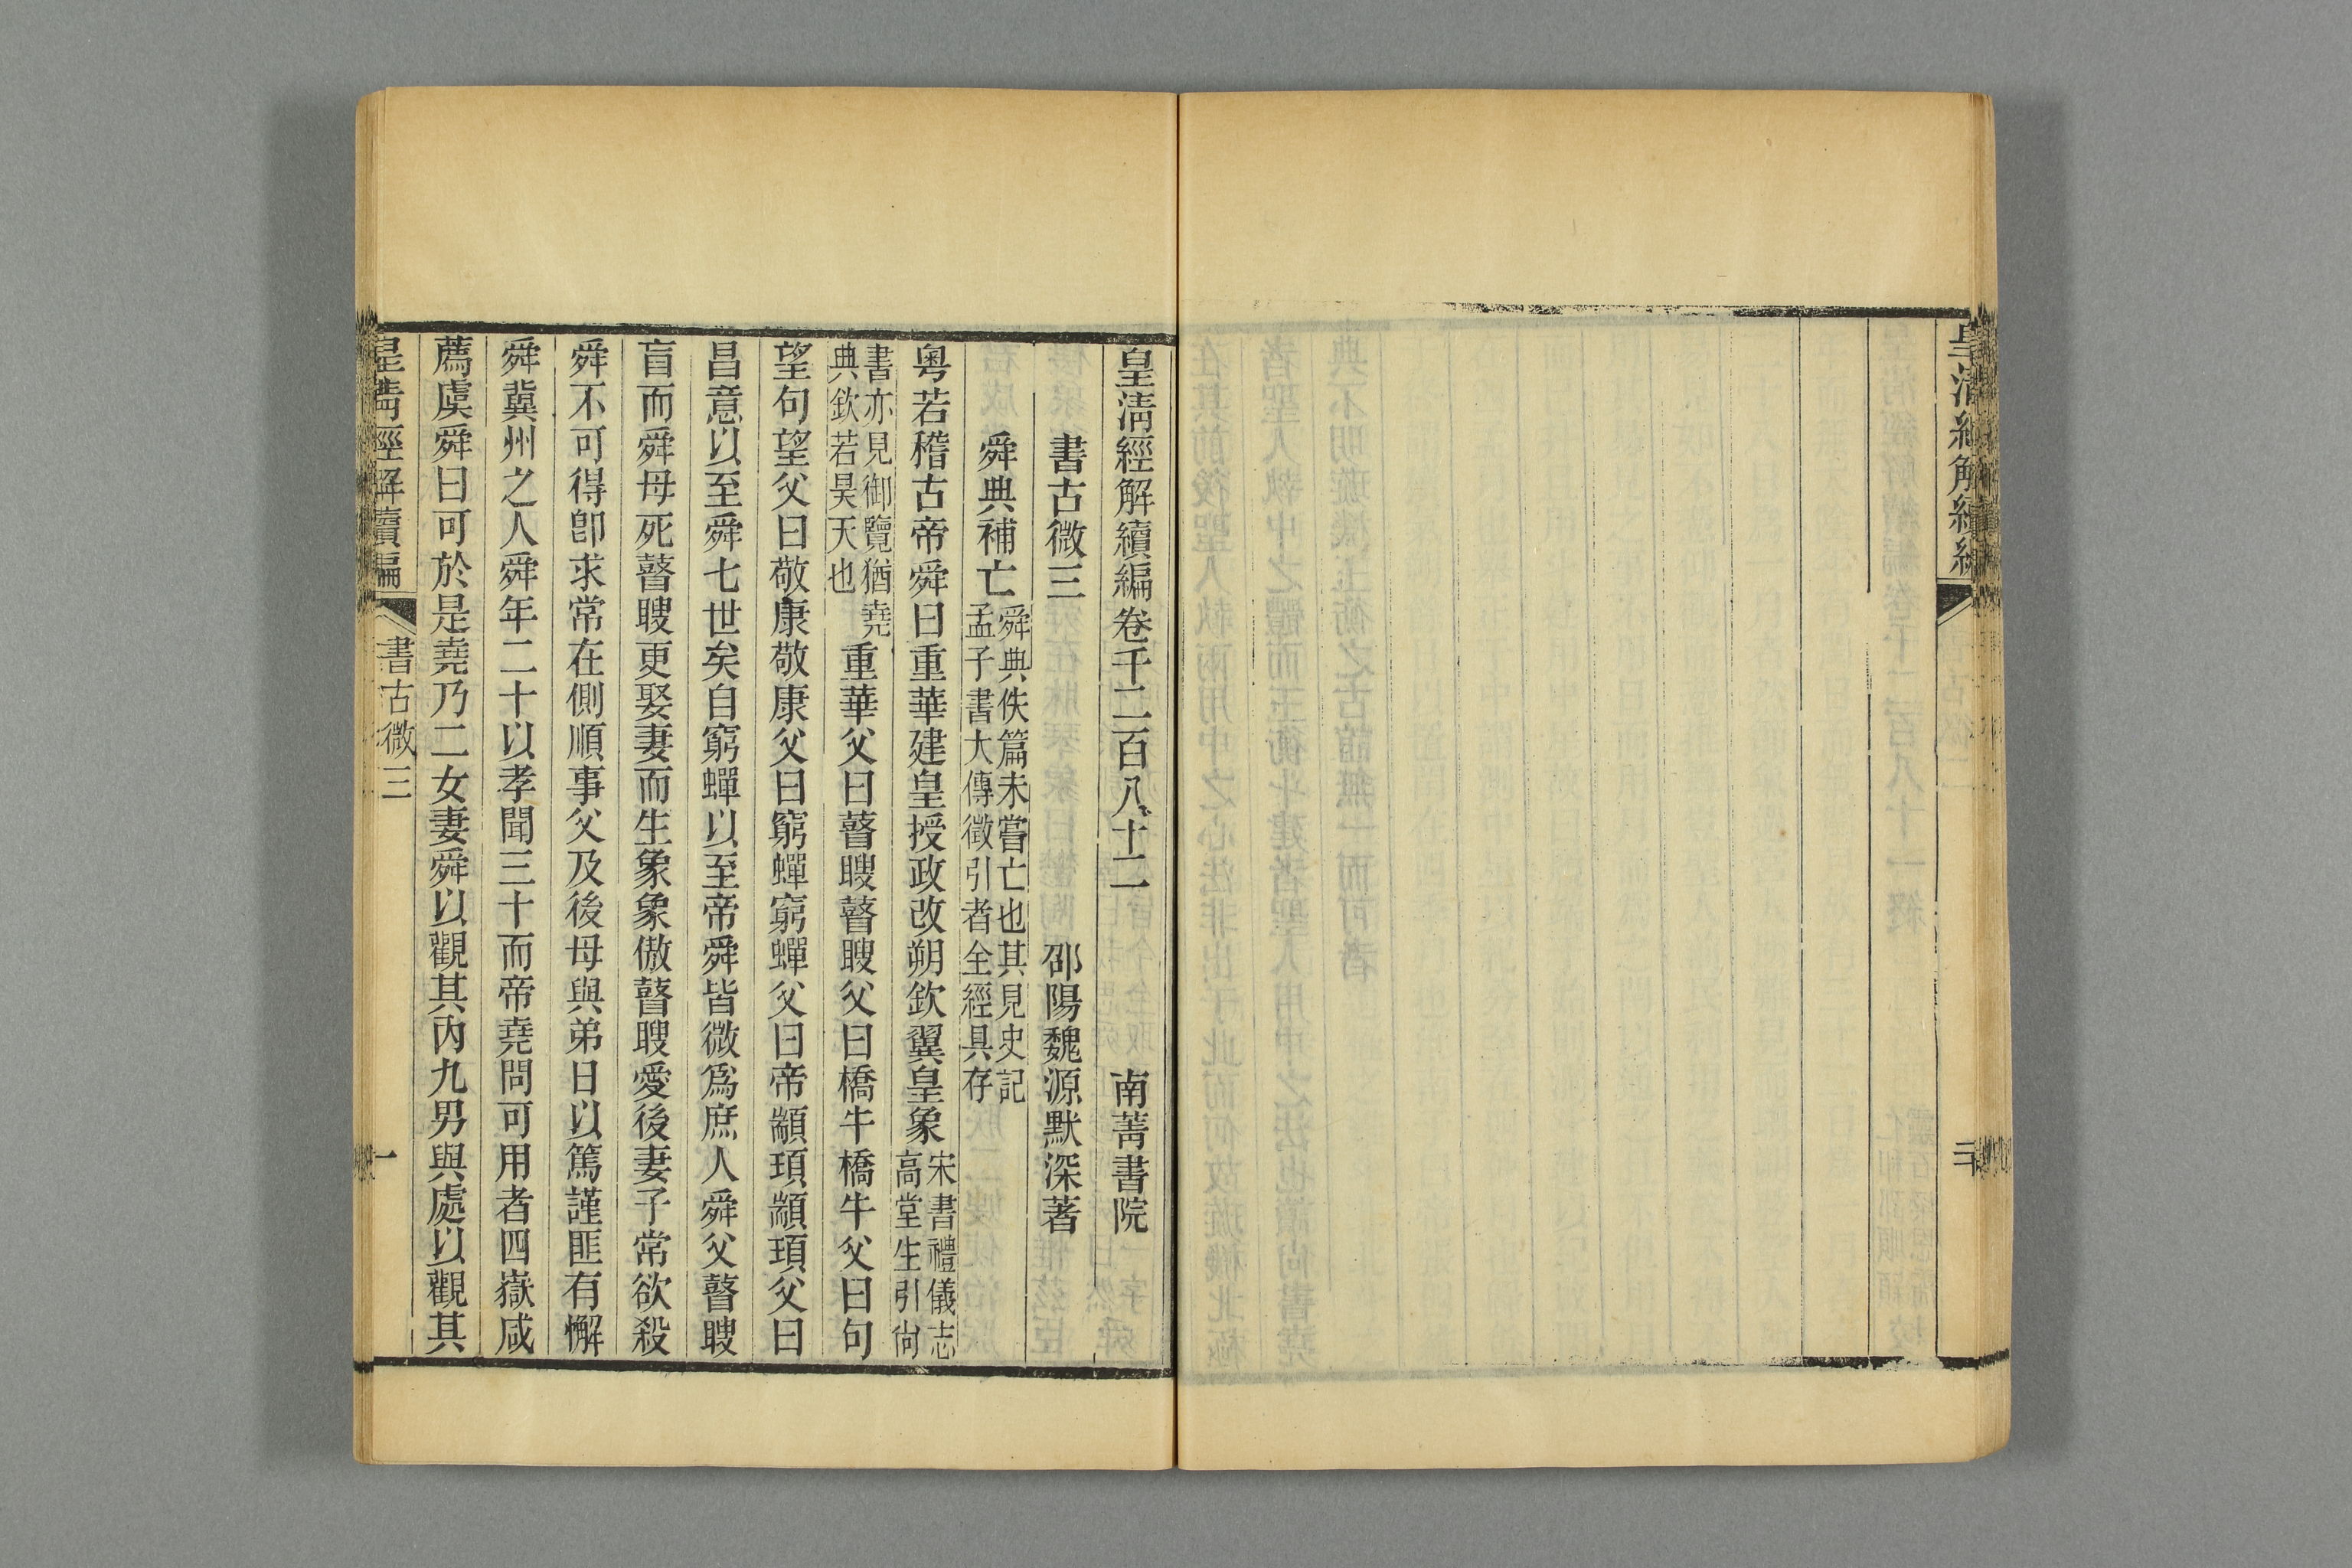 皇清經解續編
三
皇清經解續編卷千二百八十二　南菁書院
書古微三　邵陽魏源默深著
舜典補亡　舜典佚篇未嘗亡也其見史記
孟子書大傳徵引者全經具存
粵若稽古帝舜曰重華建皇授政改朔欽翼皇象　宋書禮儀志
高堂生引尙
書亦見御覽猶堯
典欽若昊天也
重華父曰瞽瞍瞽瞍父曰橋牛橋牛父曰句
望句望父曰敬康敬康父曰窮蟬窮蟬父曰帝顓頊顓頊父曰
昌意以至舜七世矣自窮蟬以至帝舜皆微爲庶人舜父瞽瞍
盲而舜母死瞽瞍更娶妻而生象象傲瞽瞍愛後妻子常欲殺
舜不可得卽求常在側順事父及後母與弟日以篤謹匪有懈
舜冀州之人舜年二十以孝聞三十而帝堯問可用者四嶽咸
薦虞舜曰可於是堯乃二女妻舜以觀其內九男與處以觀其
皇淸經解續編　書古微三　一